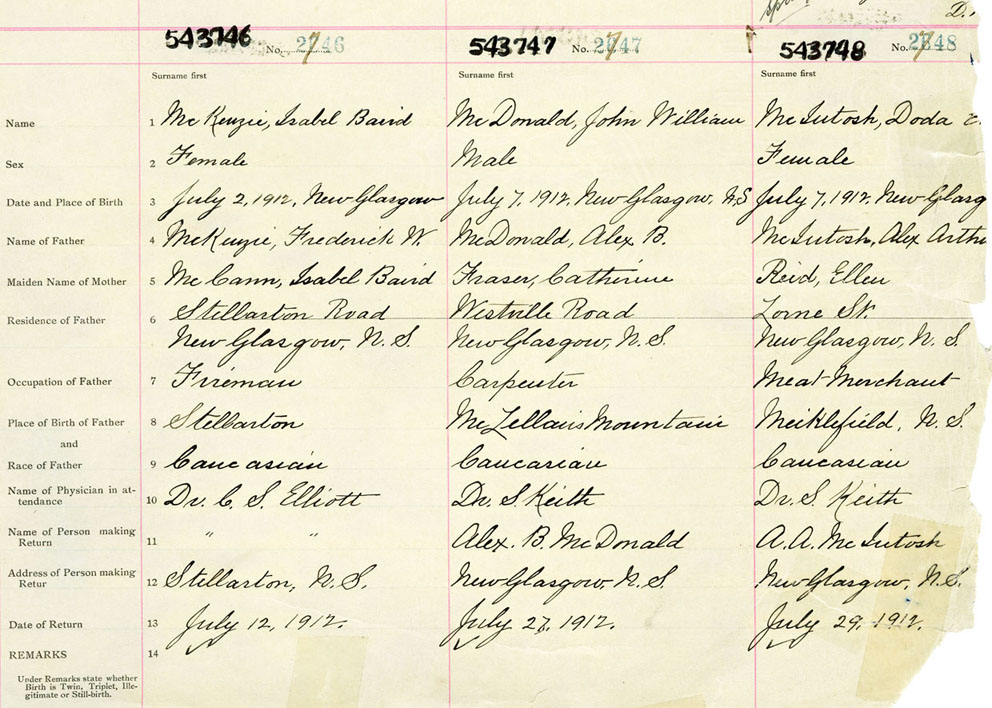 D.
543746 No. 2746 543747 No. 2747 543748 No. 2748
Surname first Surname first Surname first
Name 1 McKenzie, Isabel Baird McDonald, John William McIntosh, Doda
Sex 2 Female Male Female
Date and Place of Birth 3 July 2, 1912, New Glasgow July 7, 1912, New Glasgow, N.S July 7, 1912, New Glasg
Name of Father 4 McKenzie, Frederick W. McDonald, Alex B. McIntosh, Alex Arthu
Maiden Name of Mother 5 McCann, Isabel Baird Fraser, Catherine Reid, Ellen
Residence of Father 6 Stellarton Road Westville Road Lorne St.
New Glasgow, N. S. New Glasgow, N. S. New Glasgow, N. S.
Occupation of Father 7 Fireman Carpenter Meat Merchant
Place of Birth of Father 8 Stellarton McLellans Mountain Meiklefield, N. S.
and
Race of Father 9 Caucasian Caucasian Caucasian
Name of Physician in at-
tendance 10 Dr. C. S. Elliott Dr. S Keith Dr. S. Keith
Name of Person making
Return 11 " " Alex. B. McDonald A. A. McIntosh
Address of Person making
Retur 12 Stellarton, N. S. New Glasgow N. S. New Glasgow, N. S.
Date of Return 13 July 12, 1912. July 27, 1912. July 29, 1912.
REMARKS 14
Under Remarks state whether
Birth is Twin, Triplet, Ille-
gitimate or Still-birth.